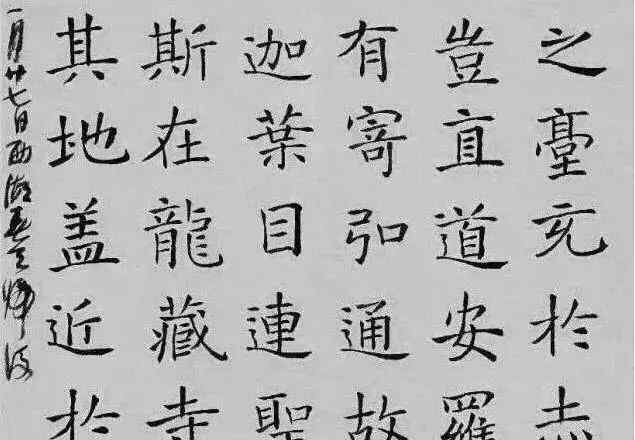 之臺充於
豈直道安羅
有寄弘通故
迦葉目連聖
斯在龍藏寺
其地盖近於
一月廿七日西湖